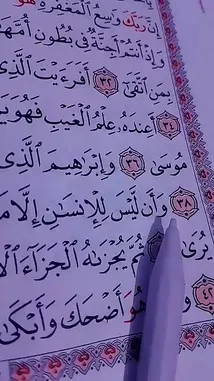 هو
إِنَّ رَبَّكَ وَٰسِعُ ٱلْمَغْفِرَةِ
وَإِذْ أَنتُمْ أَجِنَّةٌ فِى بُطُونِ أُمَّهَٰ
بِمَنِ ٱتَّقَىٰٓ ٣٢ أَفَرَءَيْتَ ٱلَّذِى
٣٤ أَعِندَهُۥ عِلْمُ ٱلْغَيْبِ فَهُوَ يَرَ
مُوسَىٰ ٣٦ وَإِبْرَٰهِيمَ ٱلَّذِى
٣٨ وَأَن لَّيْسَ لِلْإِنسَٰنِ إِلَّا مَا
يُرَىٰ ثُمَّ يُجْزَىٰهُ ٱلْجَزَآءَ ٱلْأَ
٤٢ هُوَ أَضْحَكَ وَأَبْكَىٰ